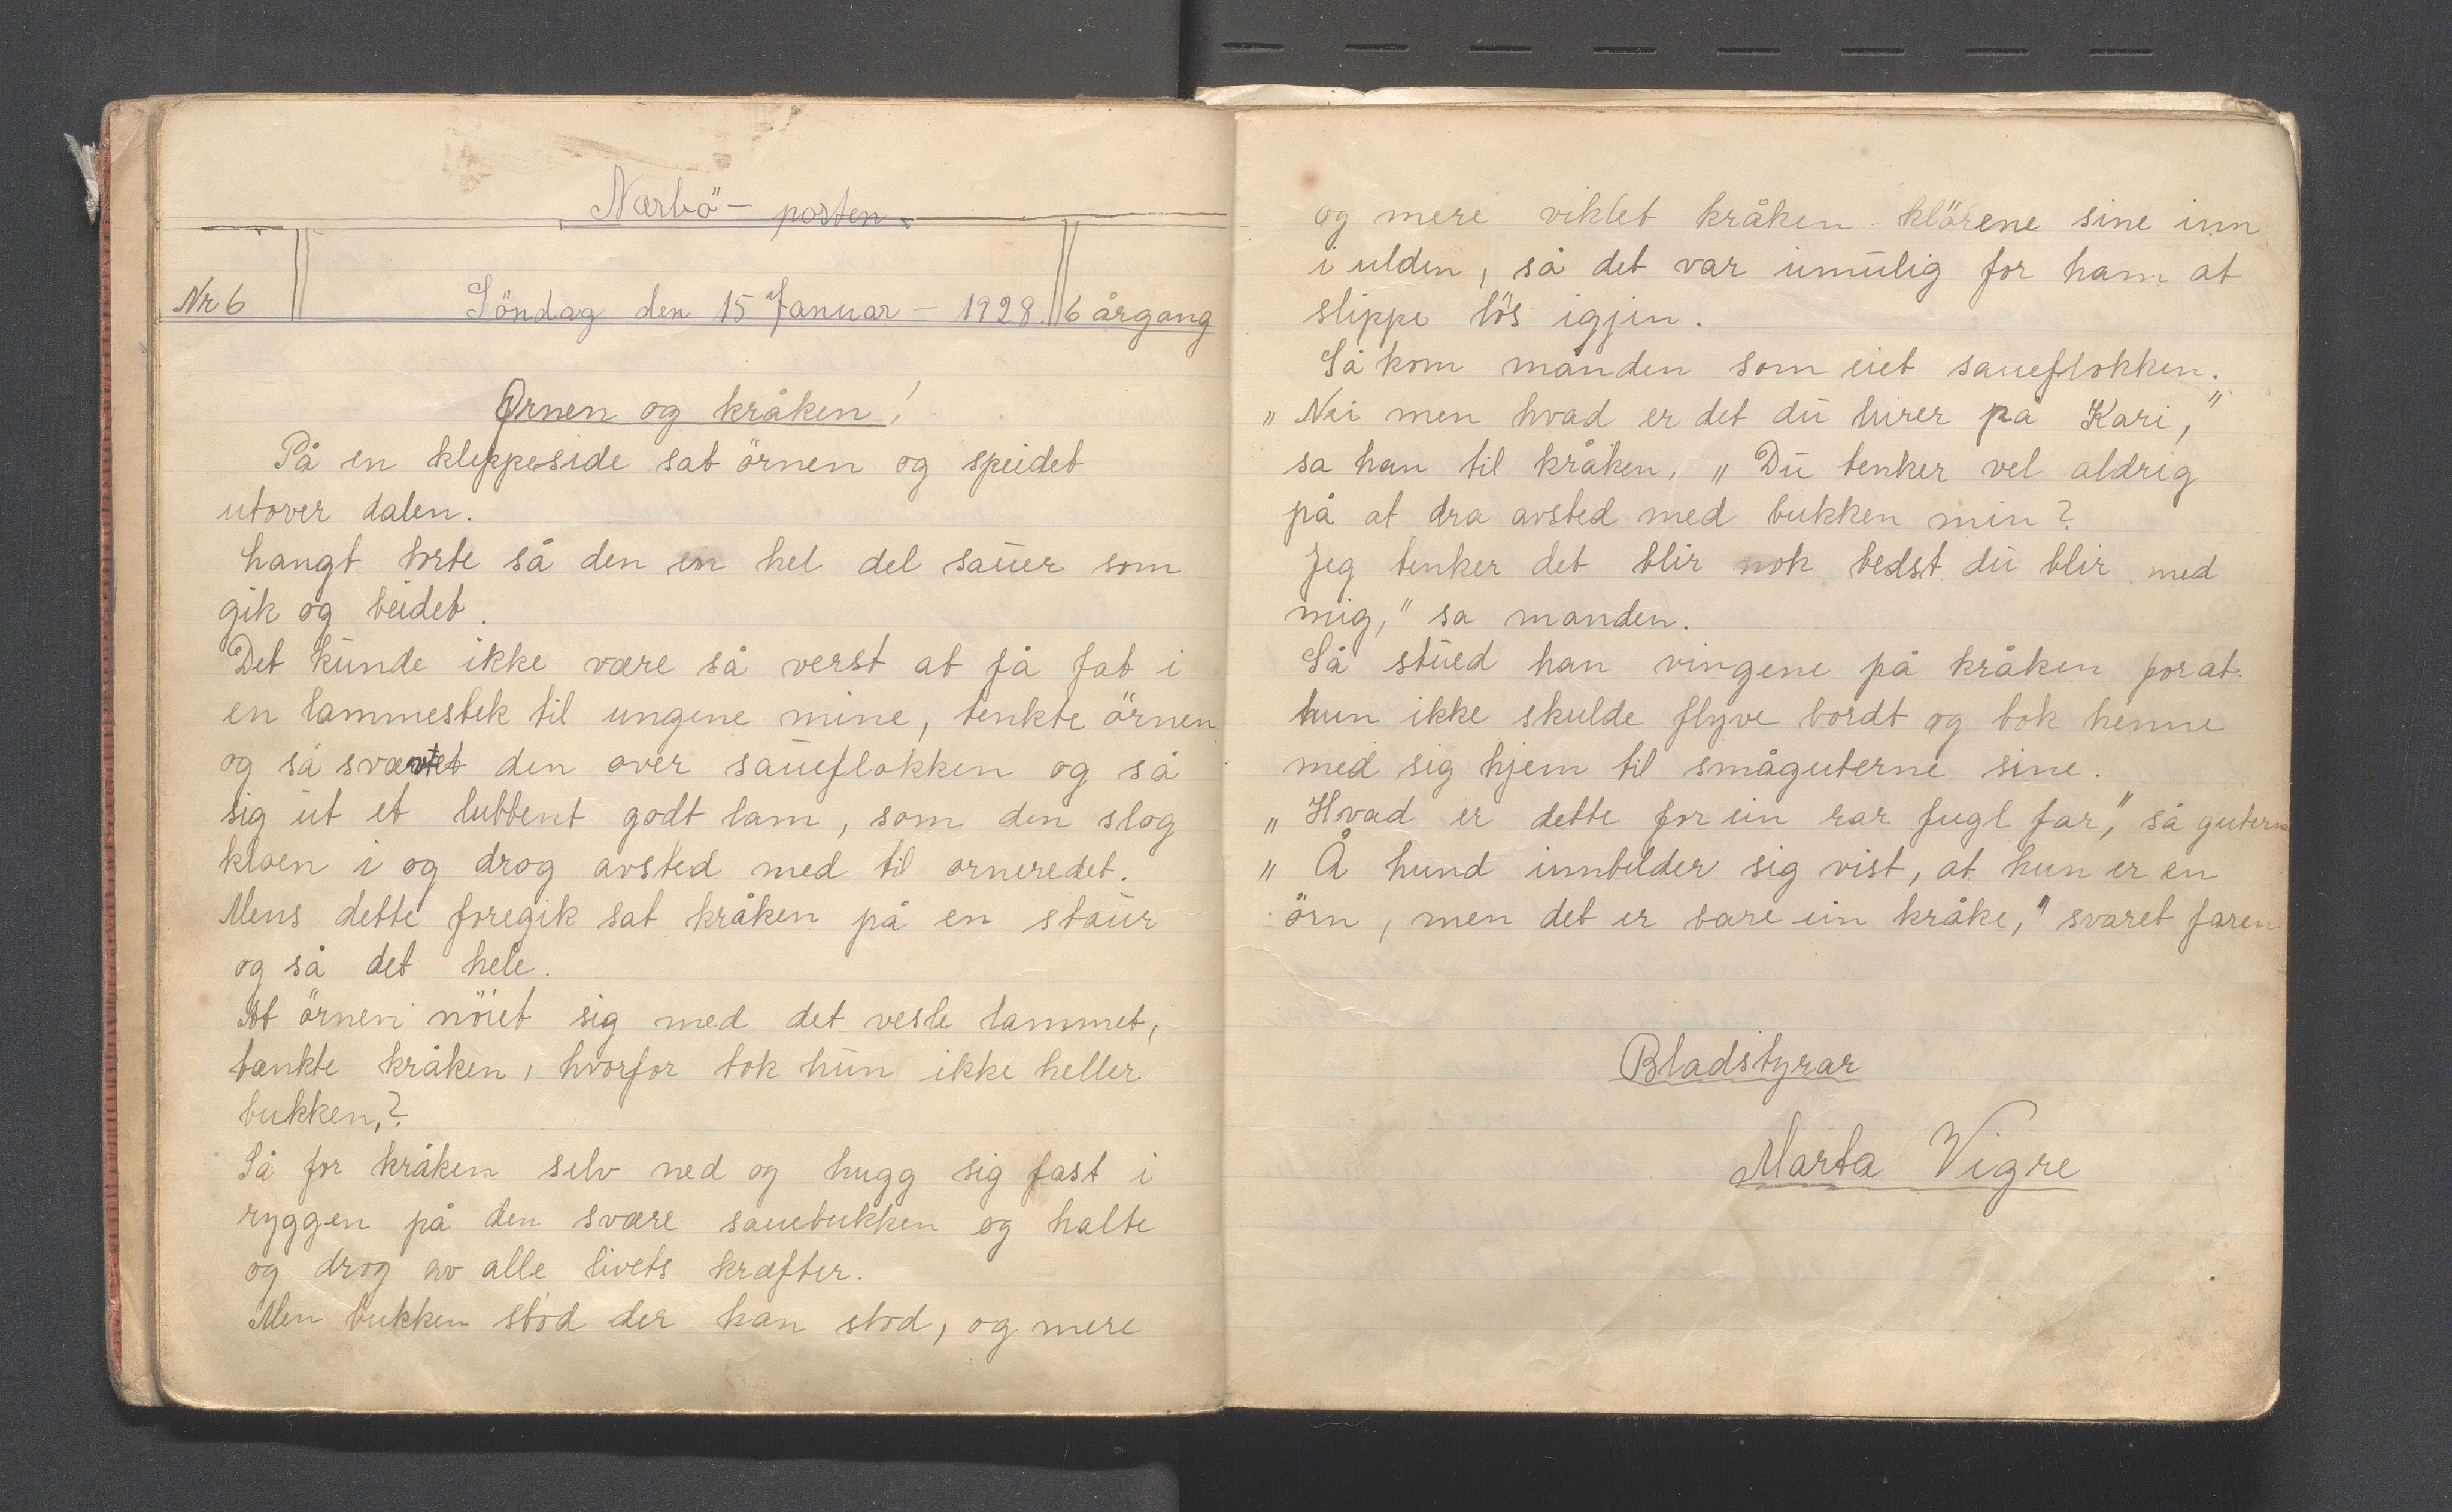 Nærbö - posten
Nr 6
Söndag den 15 Januar - 1928.
6 årgang
Ørnen og kråken!
På en kleppeside sat örnen og speidet
utover dalen.
Langt borte så den en hel del sauer som
gik og beidet.
Det kunde ikke være så verst at få fat i
en lammestek til ungene mine, tenkte örnen
og så sværtet den over saueflokken og så
sig ut et lubbent godt lam, som den slog
kloen i og drog avsted med til orneredet.
Mens dette foregik sat kråken på en staur
og så det hele.
At örnen nöiet sig med det vesle lammet,
tænkte kråken, hvorfor tok hun ikke heller
bukken,?
Så for kråken selv ned og hugg sig fast i
ryggen på den svære sauebukken og halte
og drog av alle livets kræfter.
Men bukken stod der han stod, og mere
og mere viklet kråken klörene sine inn
i ulden, så det var umulig for ham at
slippe lös igjen.
Så kom manden som eiet saueflokken.
„ Nei men hvad er det du lurer på Kari,"
sa han til kråken, „ Du tenker vel aldrig
på at dra avsted med bukken min?
Jeg tenker det blir nok bedst du blir med
mig," sa manden.
Så stued han vingene på kråken for at
hun ikke skulde flyve bordt og tok henne
med sig hjem til småguterne sine.
„ Hvad er dette for ein rar fugl far," så guterne
„ Å hund innbilder sig vist, at hun er en
örn, men det er bare ein kråke," svaret faren
Bladstyrar
Marta Vigre